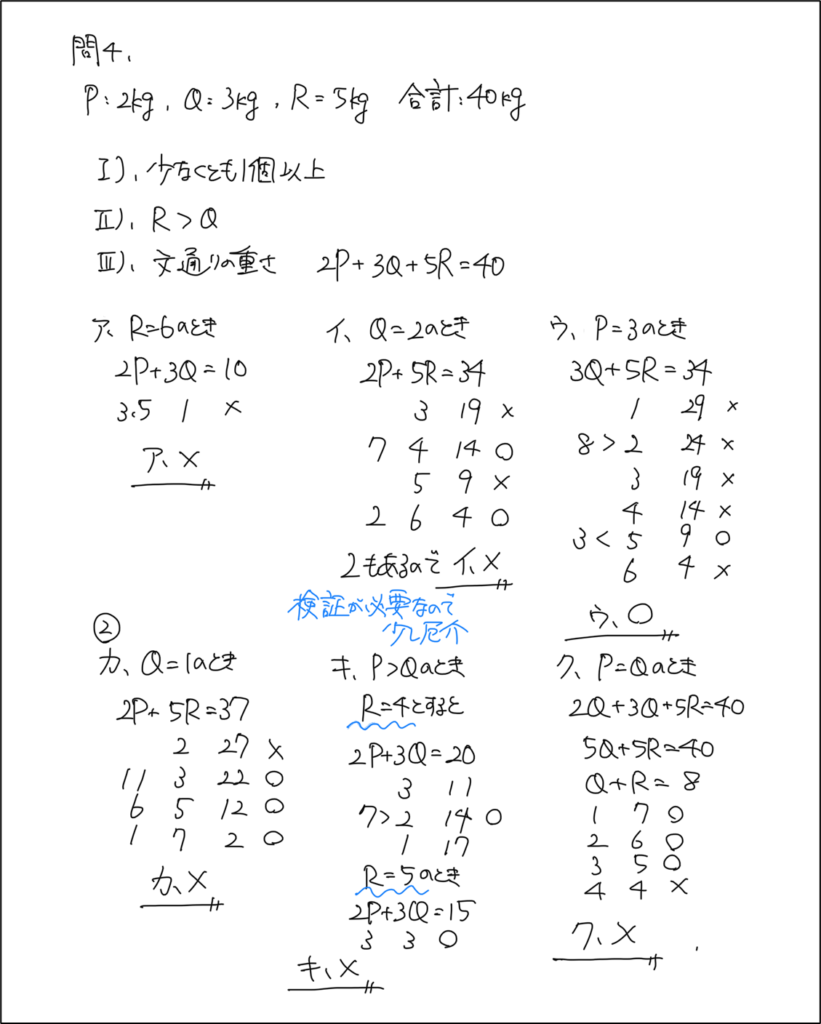 問4、
P:2kg, Q:3kg, R=5kg 合計:40kg
Ⅰ)、少なくとも1個以上
Ⅱ)、R>Q
Ⅲ)、文通りの重さ 2P+3Q+5R=40
ア、R=6のとき
2P+3Q=10
3.5 1 ×
ア、×
イ、Q=2のとき
2P+5R=34
3 19 ×
7 4 14 ○
5 9 ×
2 6 4 ○
2もあるので イ、×
検証が必要なので
少し厄介
ウ、P=3のとき
3Q+5R=34
1 29 ×
8> 2 24 ×
3 19 ×
4 14 ×
3< 5 9 ○
6 4 ×
ウ、○
②
カ、Q=1のとき
2P+5R=37
2 27 ×
11 3 22 ○
6 5 12 ○
1 7 2 ○
カ、×
キ、P>Qのとき
R=4とすると
2P+3Q=20
3 11
7> 2 14 ○
1 17
R=5のとき
2P+3Q=15
3 3 ○
キ、×
ク、P=Qのとき
2Q+3Q+5R=40
5Q+5R=40
Q+R=8
1 7 ○
2 6 ○
3 5 ○
4 4 ×
ク、×